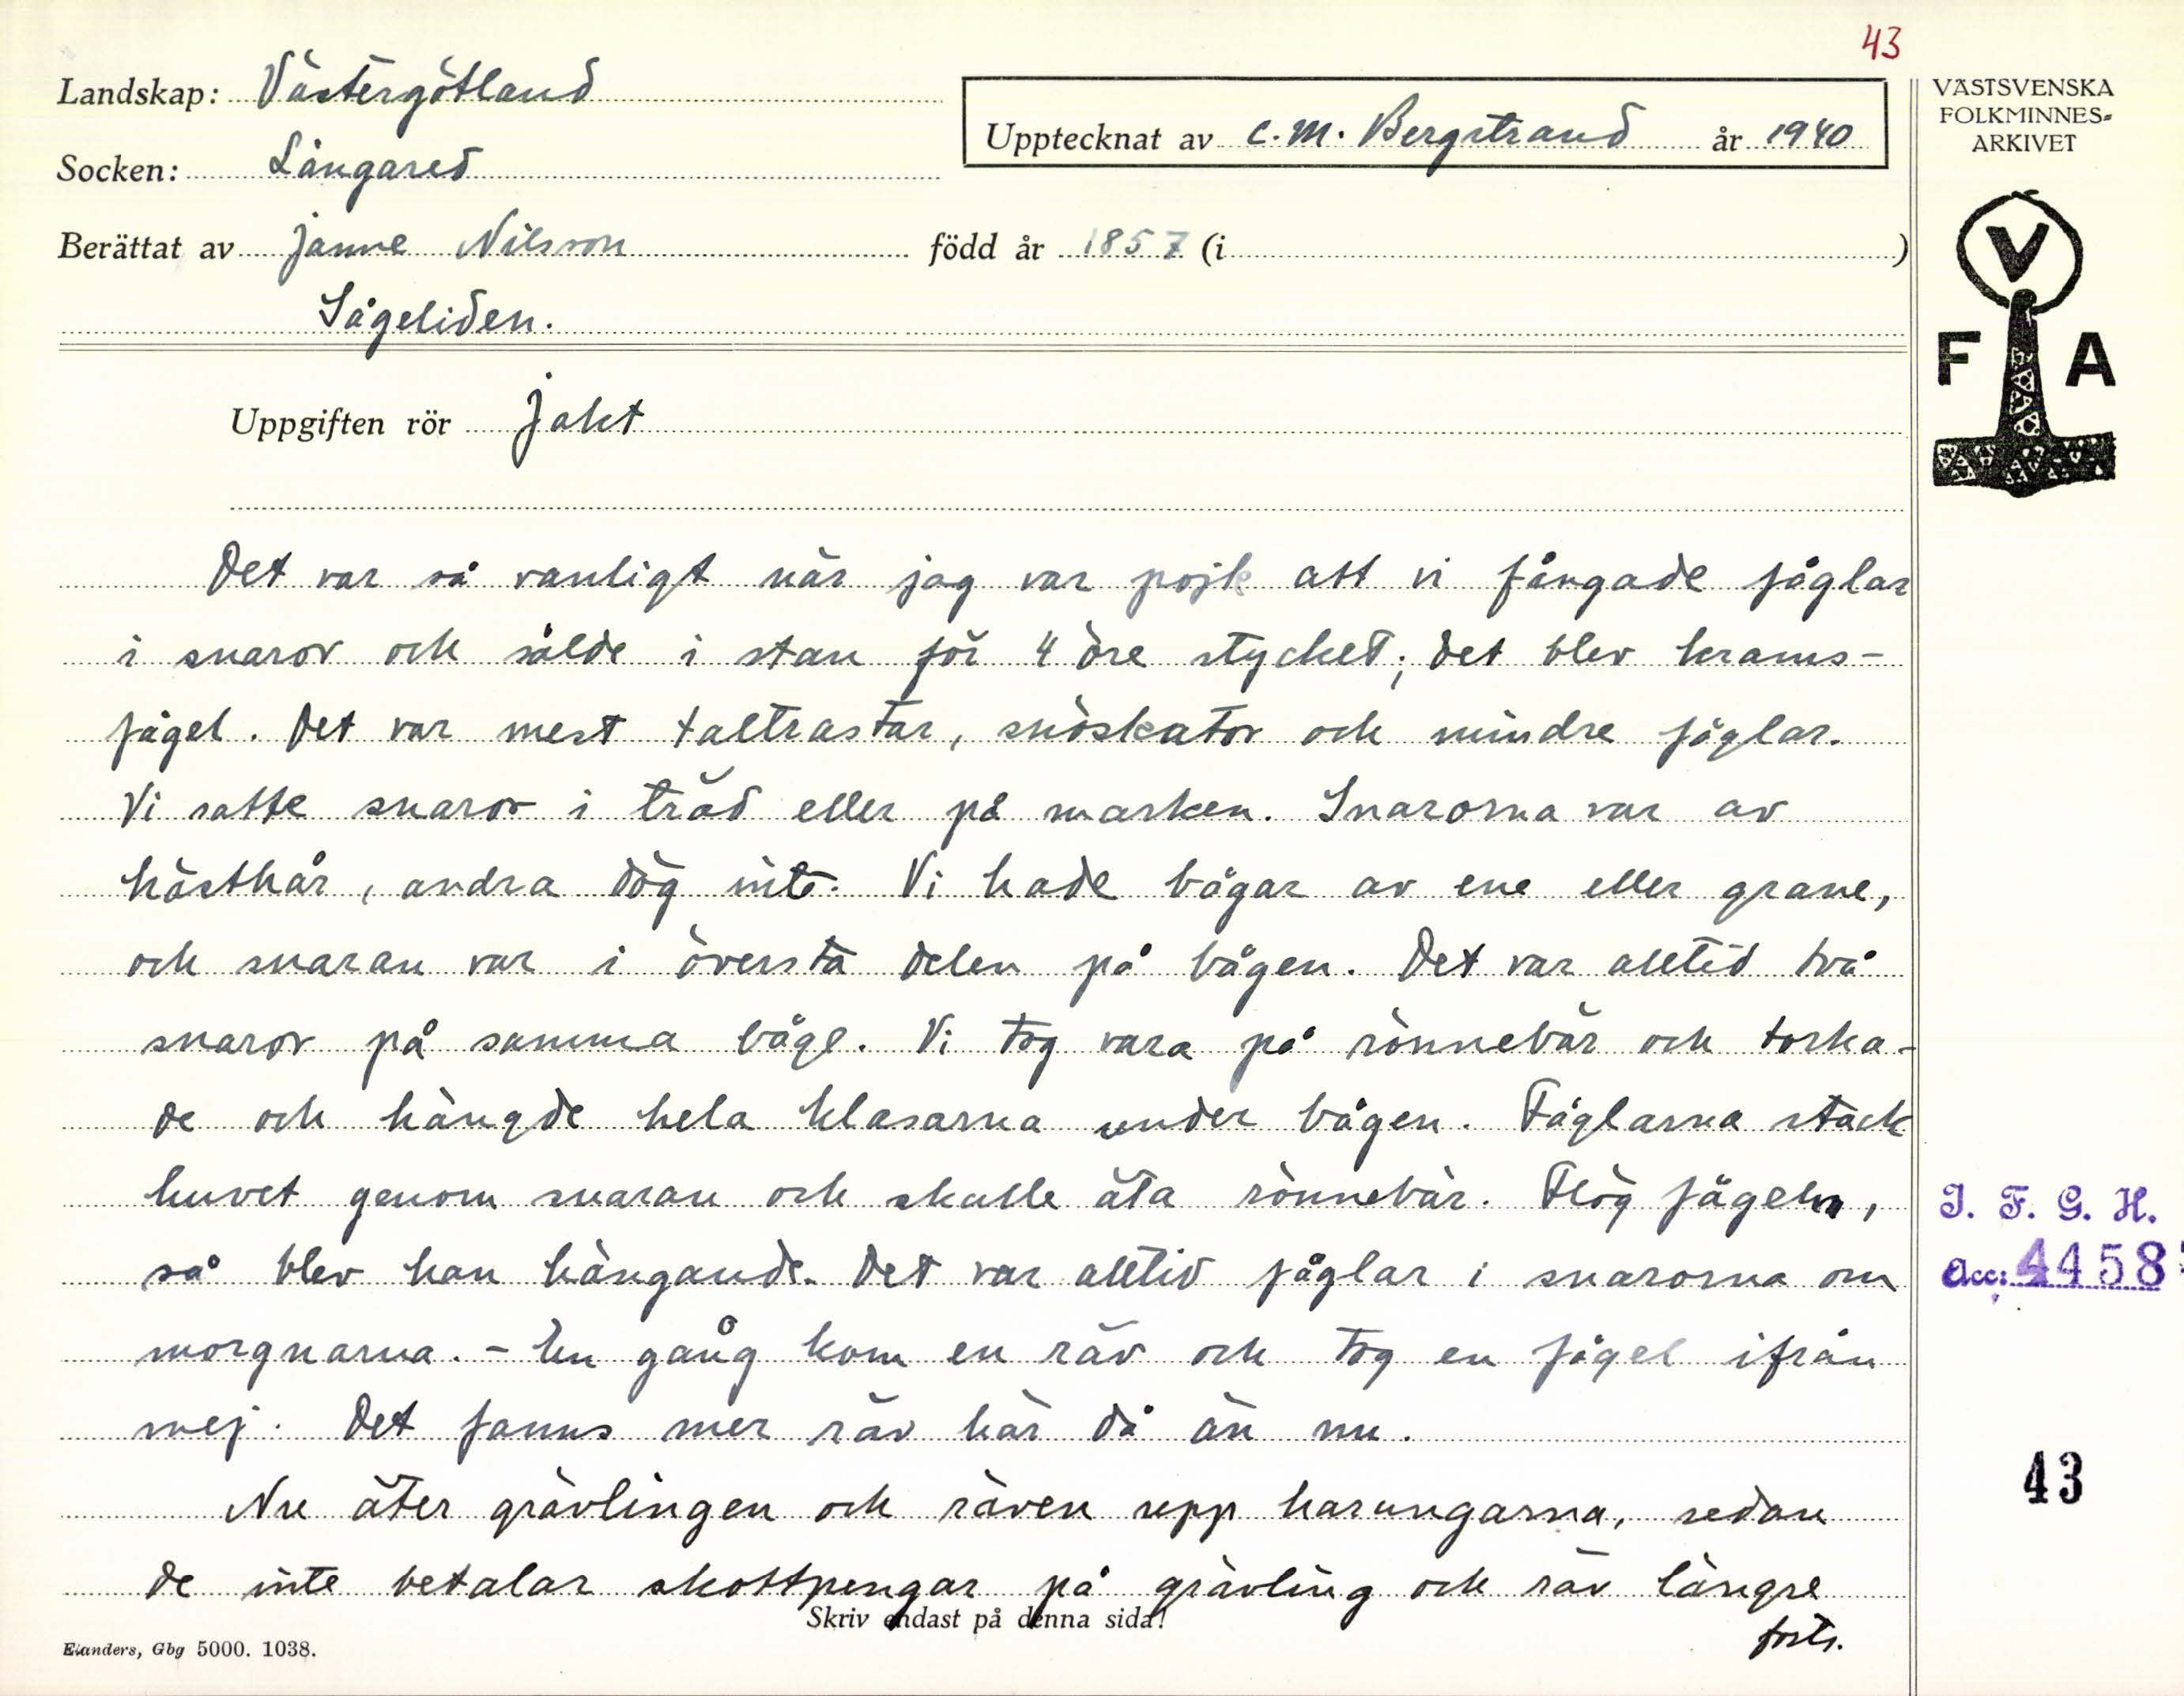 43
Landskap: Västergötland
Upptecknat av C. M. Bergstrand år 1940
VÄSTSVENSKA
FOLKMINNES=
ARKIVET
Socken: Långared
Berättat av Janne Nilsson född år 1857 (i )
Sågeliden.
V
F A
Uppgiften rör Jakt
Det var så vanligt när jag var pojk att vi fångade fåglar
i snaror och sålde i stan för 4 öre stycket; det blev krams-
fågel. Det var mest taltrastar, snöskator och mindre fåglar.
Vi satte snaror i träd eller på marken. Snarorna var av
hästhår, andra dög inte. Vi hade bågar av ene eller grane,
och snaran var i översta delen på bågen. Det var alltid två
snaror på samma båge. Vi tog vara på rönnebär och torka-
de och hängde hela klasarna under bågen. Fåglarna stack
huvet genom snaran och skulle äta rönnebär. Flög fågeln,
så blev han hängande. Det var alltid fåglar i snarorna om
morgnarna. - En gång kom en räv och tog en fågel ifrån
mej. Det fanns mer räv här då än nu.
Nu äter grävlingen och räven upp harungarna, sedan
de inte betalar skottpengar på grävling och räv längre
Skriv endast på denna sida!
forts.
Elanders, Gbg 5000. 1038.
I. F. G. H.
Acc: 4458
43